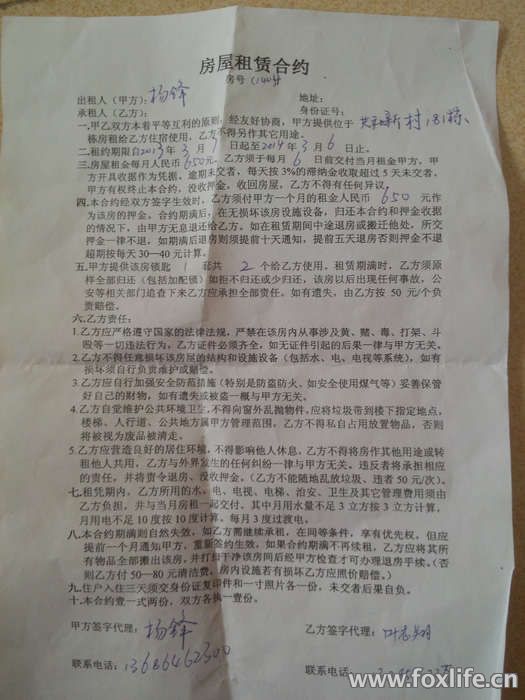 房屋租赁合约
房号
出租人（甲方）：杨锋 地址：
承租人（乙方）： 身份证号：
一.甲乙双方本着平等互利的原则，经友好协商，甲方提供位于 新村181号
栋房租给乙方住宿使用，乙方不得另作其它用途。
二.租约期限自2013年3月7日起至2014年3月6日止。
三.房屋租金每月人民币650元。乙方须于每月6日前交付当月租金甲方，甲
方开具收据作为凭据，逾期未交者，每天按3%的滞纳金收取超过5天未交者，
甲方有权终止本合约，没收押金，收回房屋，乙方不得有任何异议。
四.本合约经双方签字生效时，乙方须付甲方一个月的租金人民币650元作
为该房的押金。合约期满后，在无损坏该房设施设备，归还本合约和押金收据
的情况下，由甲方无息退还给乙方。如在租赁期间中途退房或搬迁他处，所交
押金一律不退，如期满后退房则须提前十天通知，提前五天退房否则押金不退
超期按每天30—40元计算。
五.甲方提供该房锁匙1 共2个给乙方使用，租赁期满时，乙方须原
样全部归还（包括加配锁）如拒不归还或少归还，该房以后出现任何事故，公
安等相关部门追查下来乙方应承担全部责任。如有遗失，由乙方按50元/个负
责赔偿。
六.乙方责任：
1.乙方应严格遵守国家的法律法规，严禁在该房内从事涉及黄、赌、毒、打架、斗
殴等一切违法行为，乙方证件必须齐全，如无证件引起的后果一律与甲方无关。
2.乙方不得任意损坏该房屋的结构和设施设备（包括水、电、电视等系统），如有
损坏须自行负责维护或赔偿。
3.乙方应自行加强安全防范措施（特别是防盗防火、如安全使用煤气等）妥善保管
好自己的财物，如有遗失或被盗一概与甲方无关。
4.乙方自觉维护公共环境卫生，不得向窗外乱抛物件，应将垃圾带到楼下指定地点，
楼梯、人行道、公共地方属甲方管理范围，乙方不得私自占用放置物品，否则
将被视为废品被清走。
5.乙方应营造良好的居住环境，不得影响他人休息，乙方不得将房作其他用途或转
租他人共用，乙方与外界发生的任何纠纷一律与甲方无关。违反者将承担相应
的责任，并将责令退房、没收押金。（乙方不能随地乱放垃圾、违者50元/次）。
七.租赁期内，乙方所用的水、电、电视、电梯、治安、卫生及其它管理费用须由
乙方负担，并与当月房租一起交付。其中月用水量不足3立方按3立方计算，
月用电不足10度按10度计算。每月3度过渡电。
八.本合约期满则自然失效，如乙方需继续承租，在同等条件，享有优先权，但应
提前一个月通知甲方，重新签约生效，如果合约期满不再续租，乙方应将其所
有物品全部搬出该房，并打扫干净该房间后经甲方检查才可办理退房手续。（否
则乙方付50—80元清洁费，房内设施若有损坏乙方应照价赔偿。）
九.住户入住三天须交身份证复印件和一寸照片各一份，未交者后果自负。
十.本合约壹一式两份，双方各执一壹份。
甲方签字代理：杨锋 乙方签字代理：
联系电话：13686462300 联系电话：
www.foxlife.cn